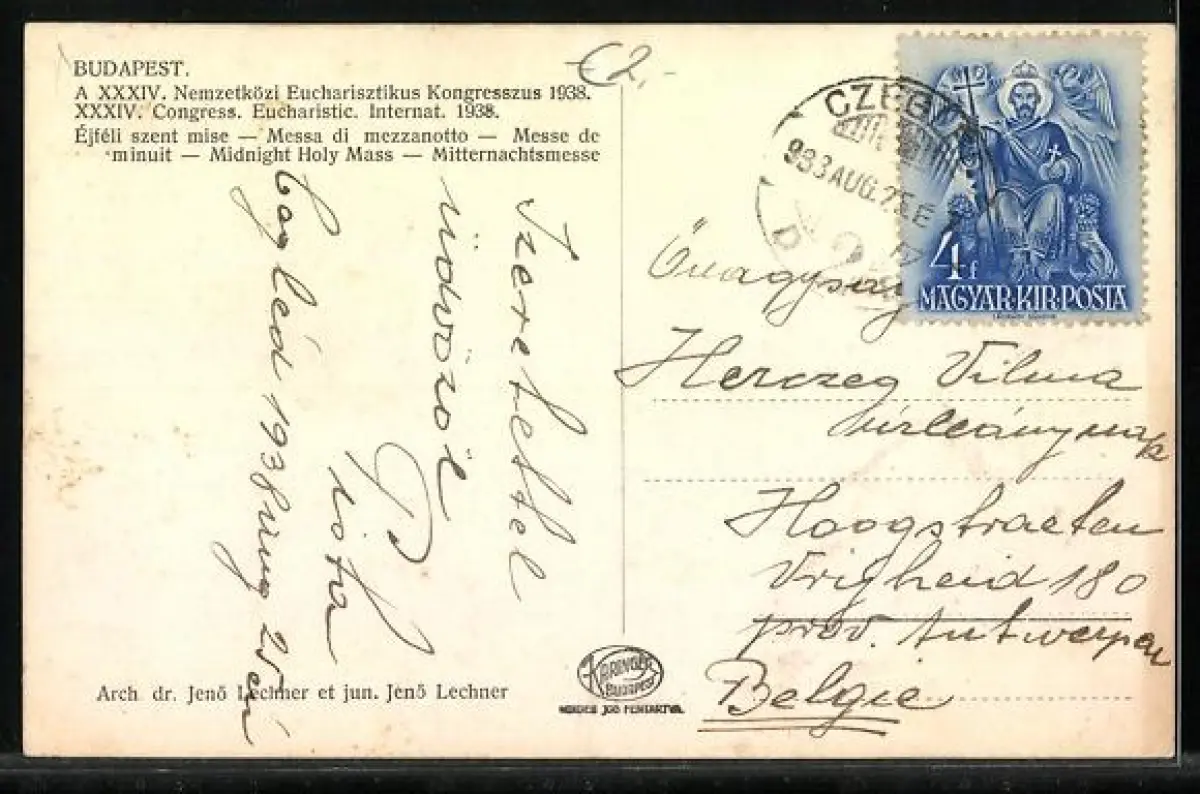 BUDAPEST.
A XXXIV. Nemzetközi Eucharisztikus Kongresszus 1938.
XXXIV. Congress. Eucharistic. Internat. 1938.
Éjféli szent mise — Messa di mezzanotto — Messe de
minuit — Midnight Holy Mass — Mitternachtsmesse
Szeretettel
üdvözöl
Czegléd 1938 25 én
Arch. dr. Jenő Lechner et jun. Jenő Lechner
KARINGER
BUDAPEST
MINDEN JOG FENTARTVA.
CZEGL
AUG. 25
4f
MAGYAR·KIR·POSTA
Önagyság
Herczeg Vilma
úrleánynak
Hoogstraeten
Vrijheid 180
prov. Antwerpen
Belgie